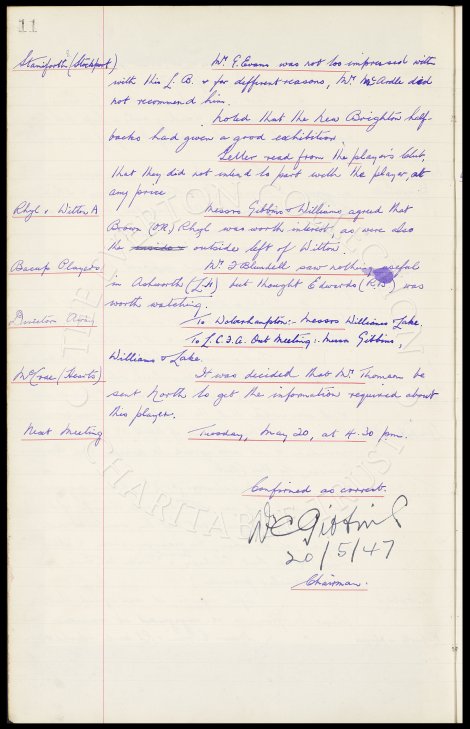 11
Staniforth (Stockport) Mr. E. Evans was not too impressed with
with this L.B. & for different reasons, Mr. McArdle did
not recommend him.
Noted that the New Brighton half-
backs had given a good exhibition
Letter read from the players Club,
that they did not intend to part with the player, at
any price
Rhyl v. Witton A Messrs Gibbins & Williams, agreed that
Brown (OR) Rhyl was worth interest, as were also
the outside left of Witton.
Bacup Players Mr. J Blundell saw nothing useful
in Ashworth (LH) but thought Edwards (R.B) was
worth watching.
Directors Away To Wolverhampton:- Messrs Williams & Lake.
To L.C.F.A. Out Meeting:- Messrs Gibbins,
Williams & Lake.
McCrae (Hearts) It was decided that Mr. Thomson be
sent North to get the information required about
this player.
Next Meeting Tuesday, May 20, at 4.30 pm.
Confirmed as correct.
W C Gibbins
20/5/47
Chairman.
THE EVERTON COLLECTION
CHARITABLE TRUST